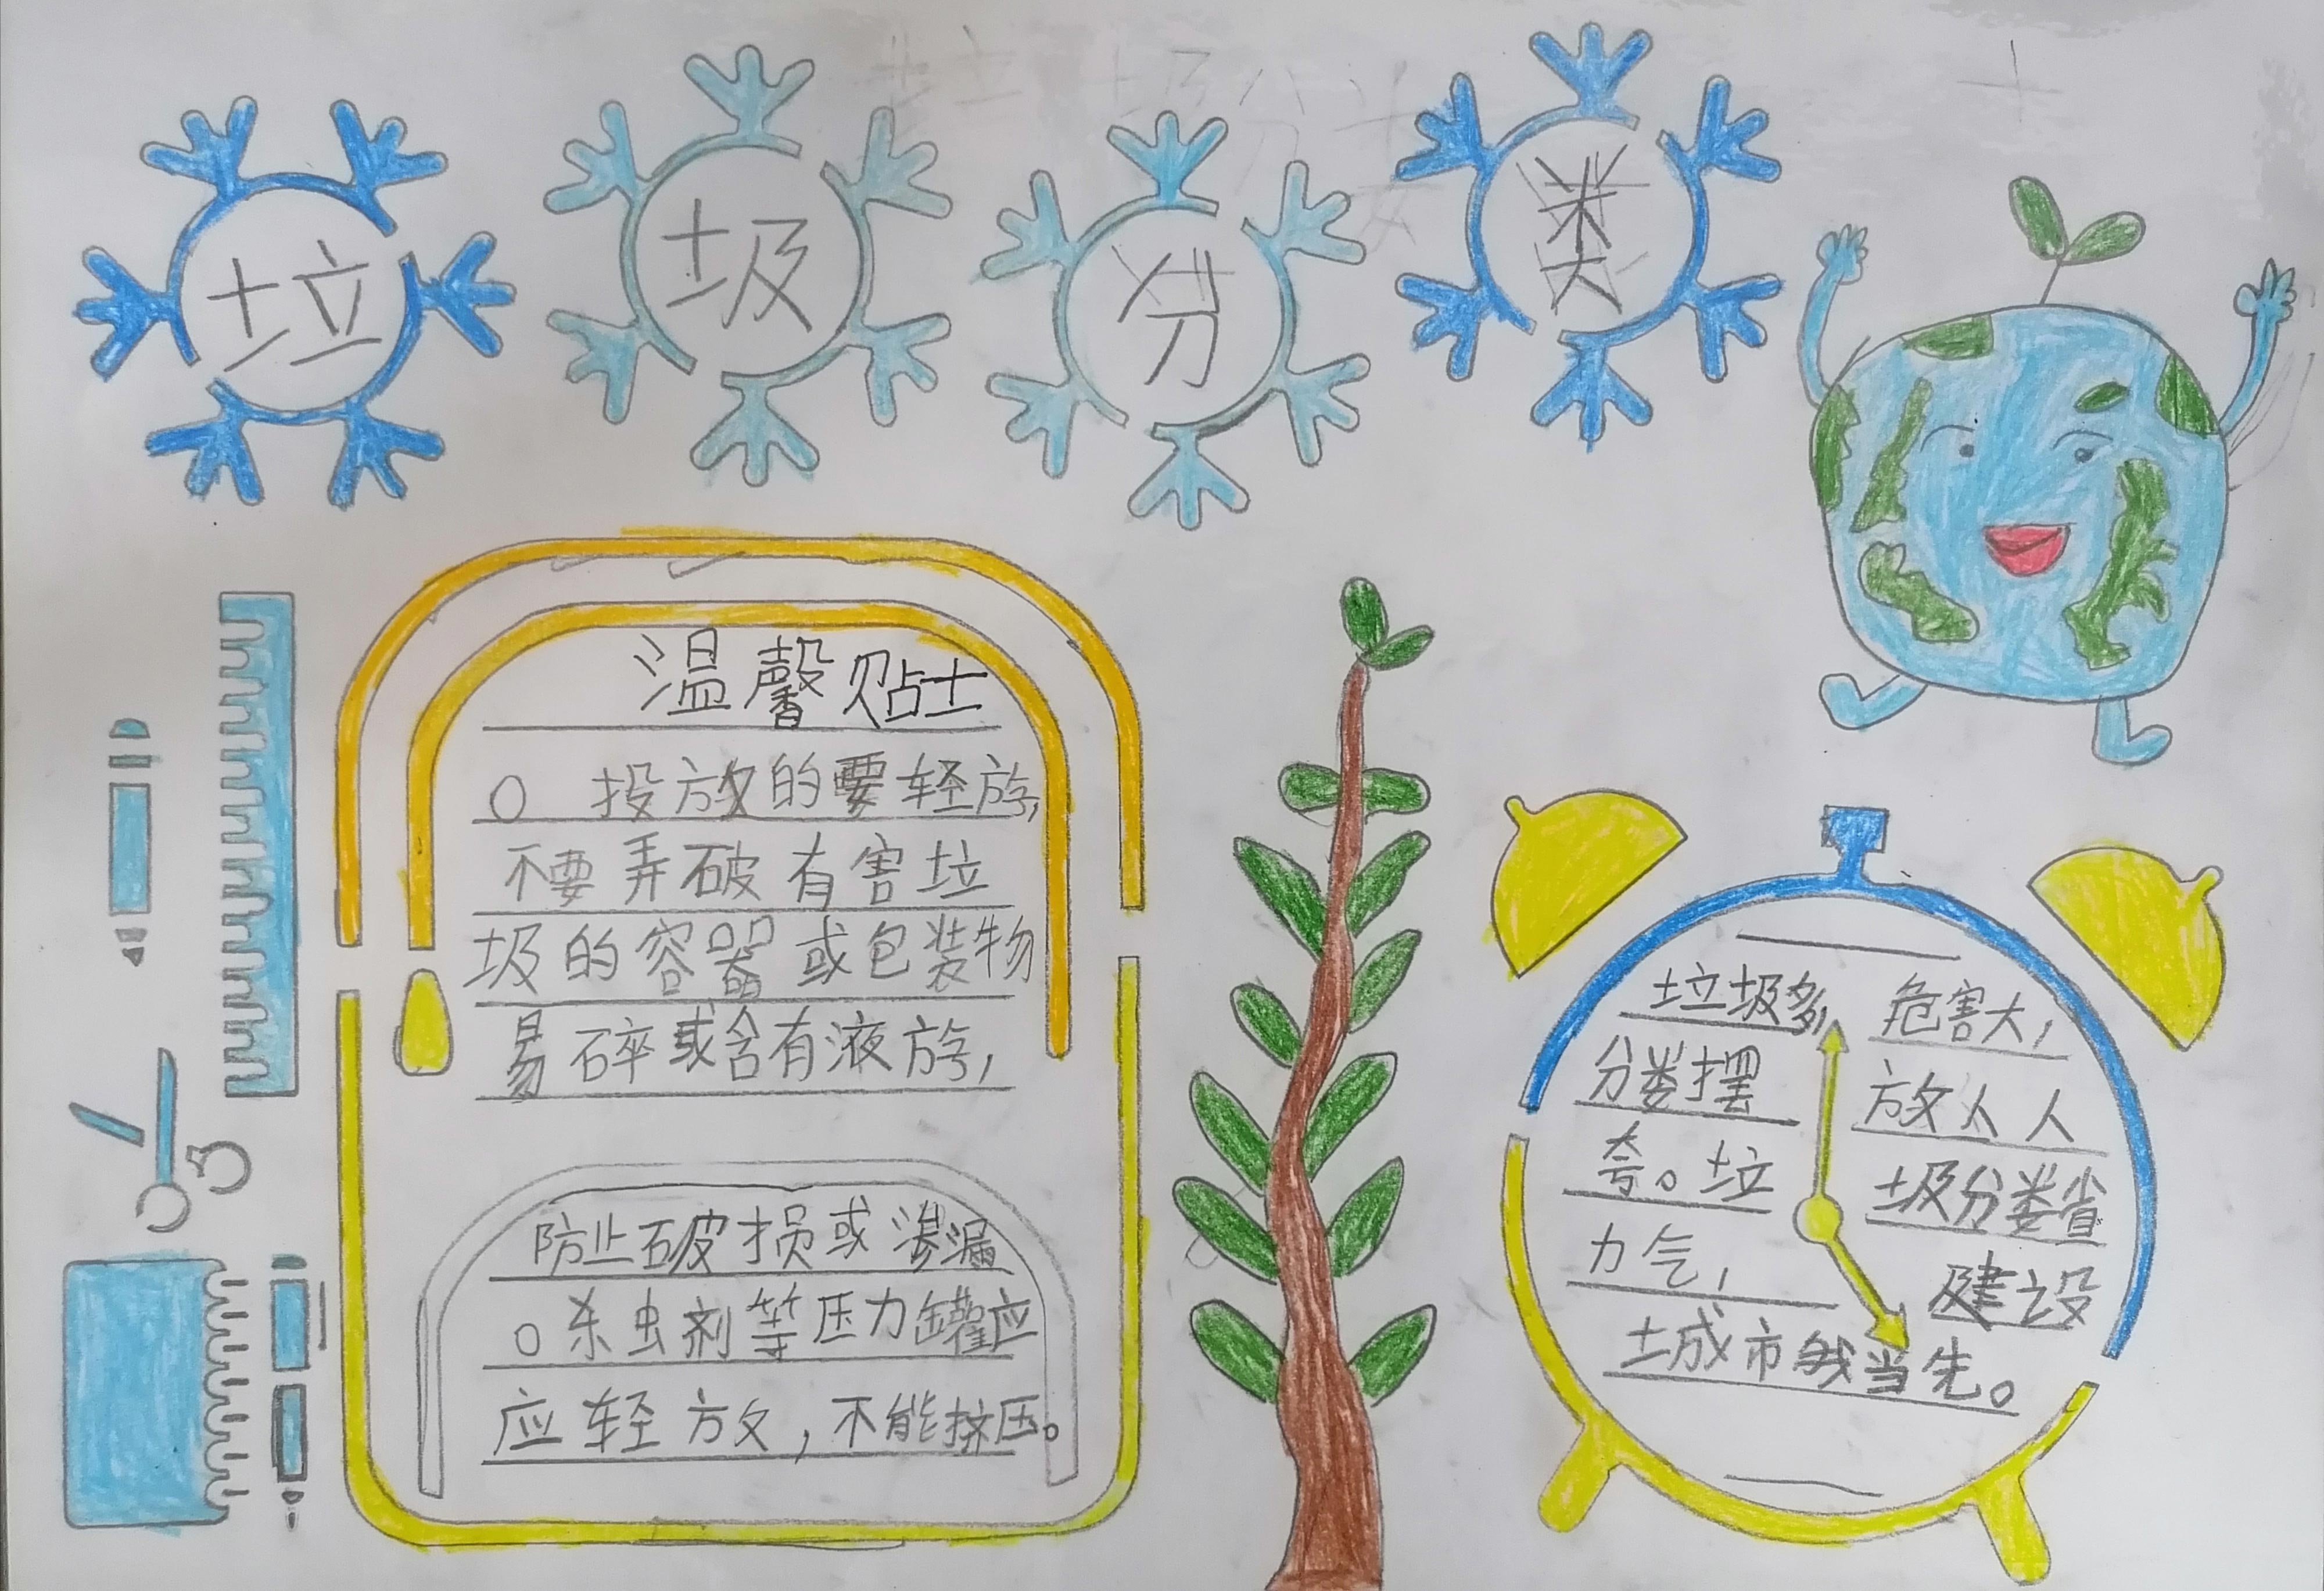 垃圾分类
温馨贴士
○ 投放的要轻放,
不要弄破有害垃
圾的容器或包装物
易碎或含有液放,
防止破损或渗漏
○杀虫剂等压力罐应
应轻放,不能挤压。
垃圾多, 危害大,
分类摆放人人
夸。垃圾分类省
力气, 建设
土城市我当先。